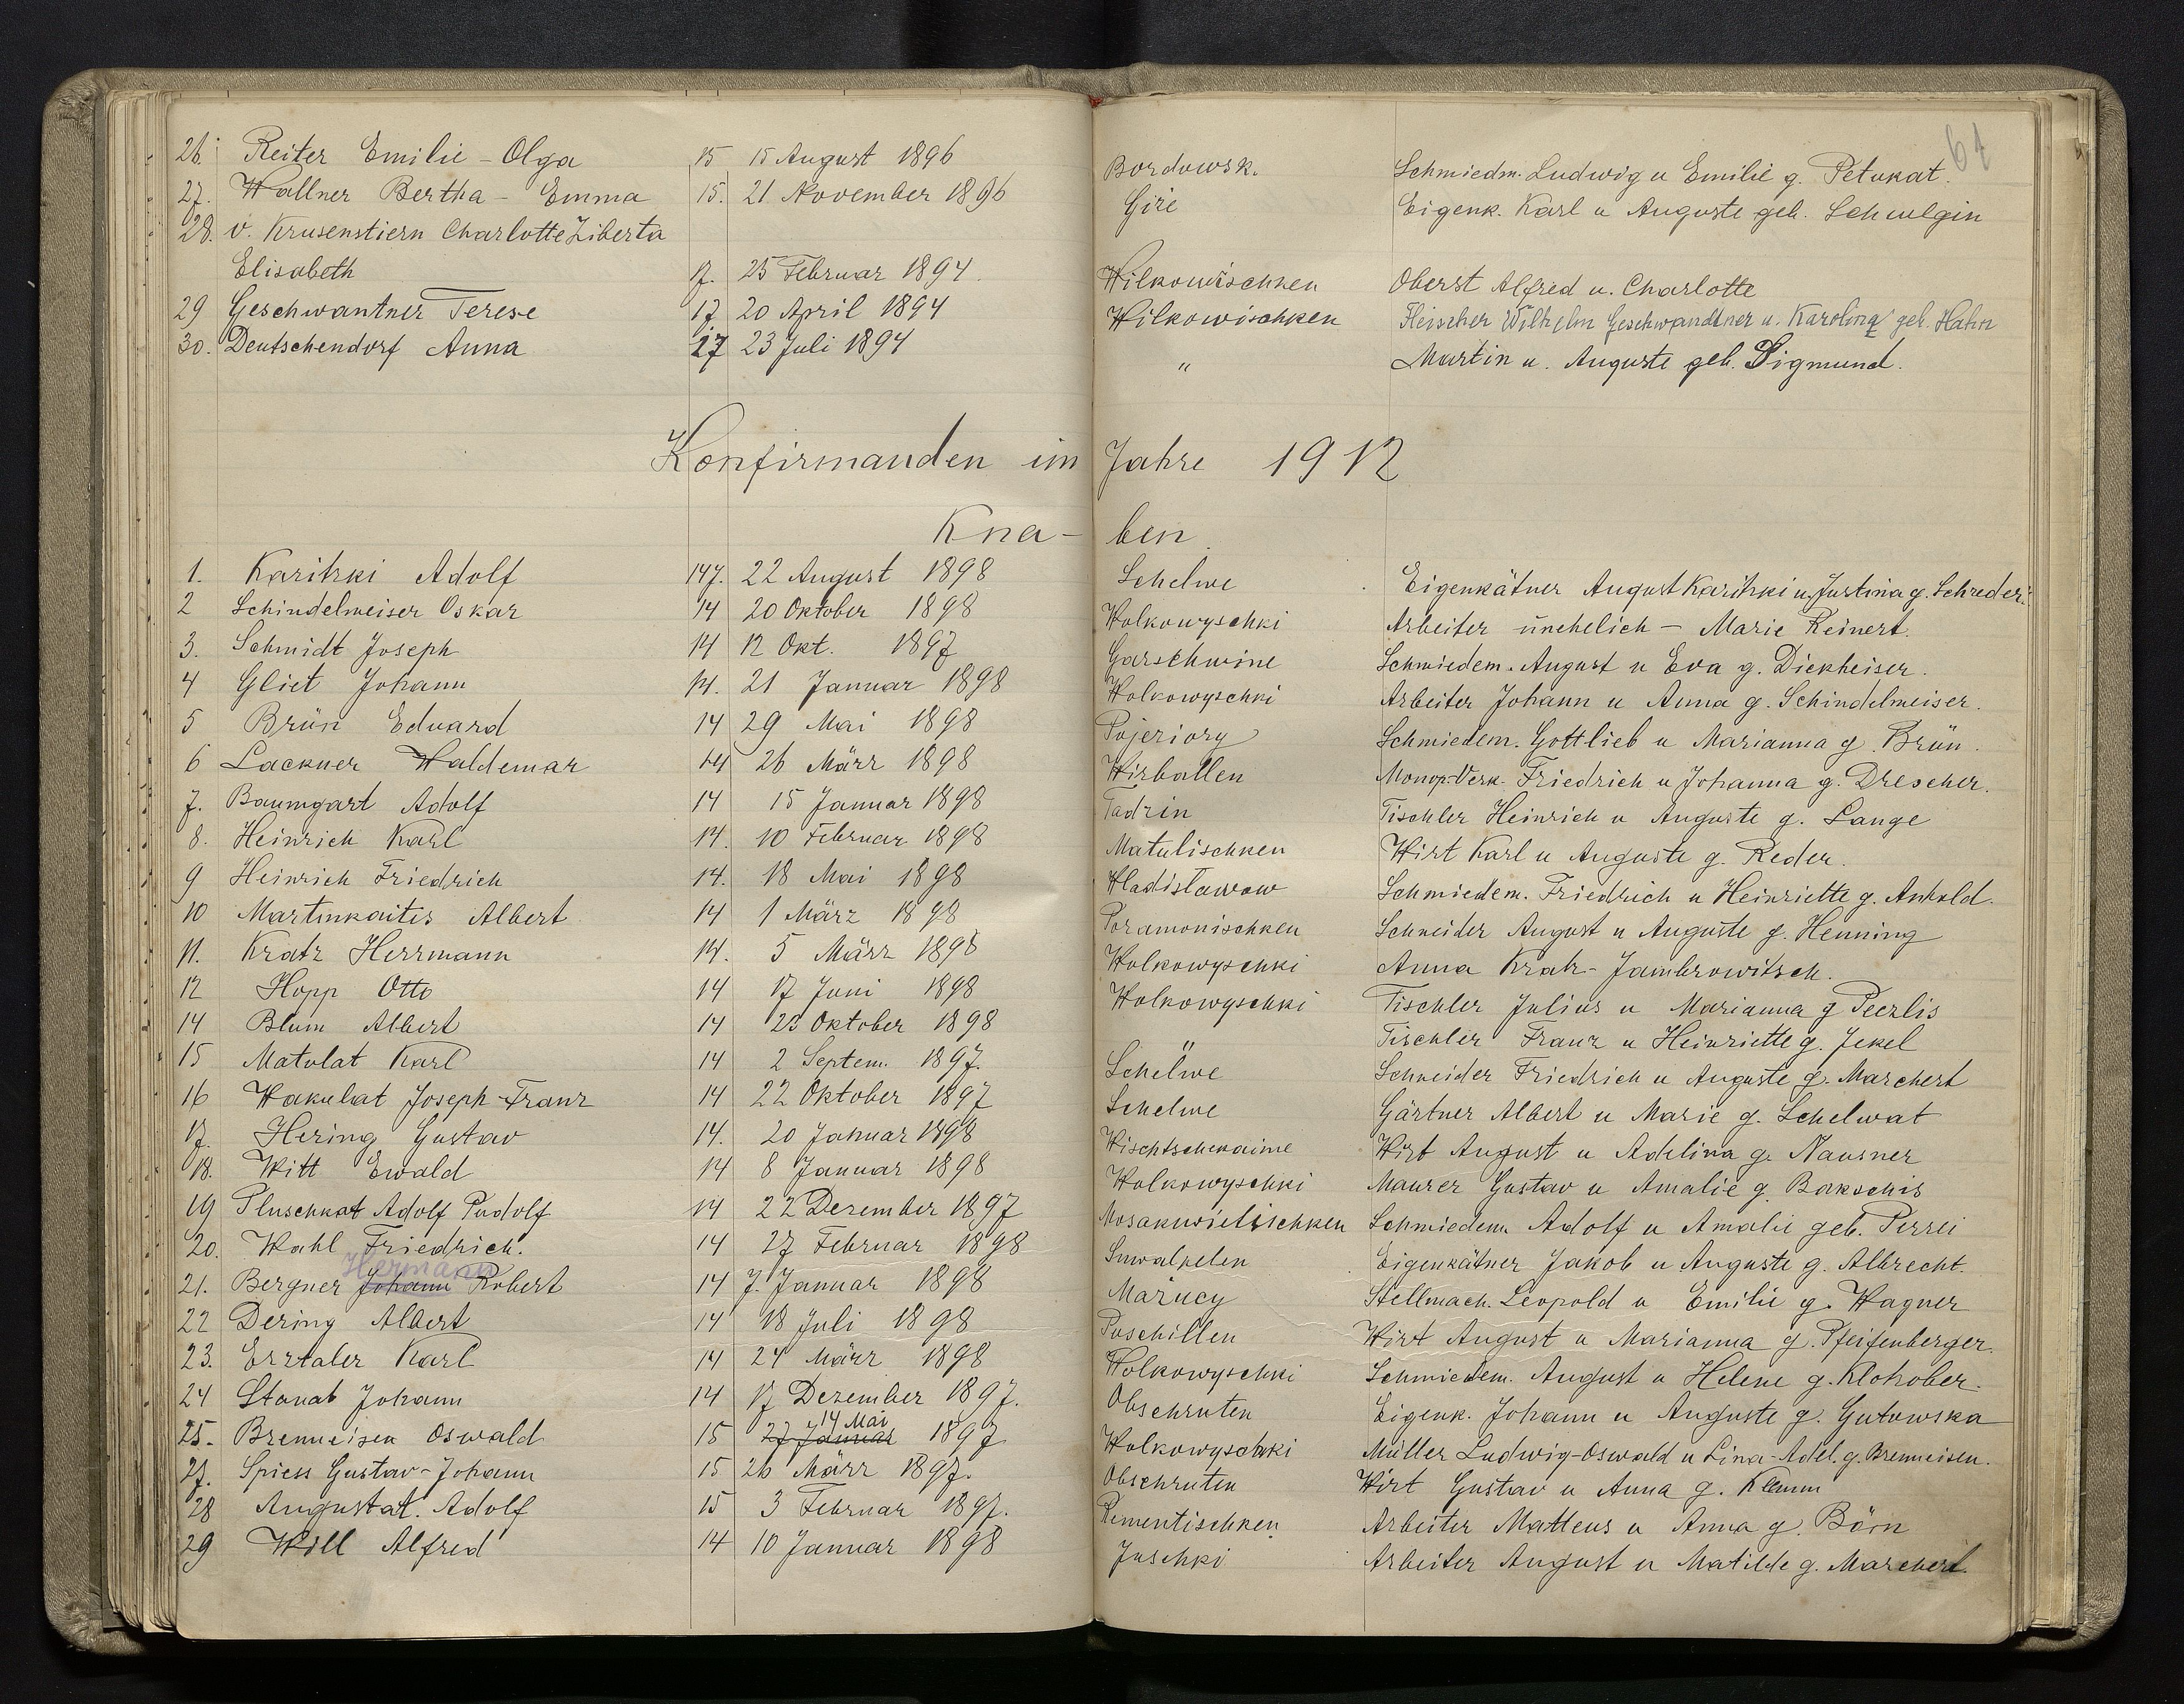 61
26. Reiter Emilie - Olga 15 15 August 1896 Bordowsk. Schmiedm. Ludwig u Emilie g. Petukat.
27. Wallner Bertha - Emma 15. 21 November 1896 Giře Eigenk. Karl u Auguste geb. Schulgin
28. v. Krusenstiern Charlotte Liberta
Elisabeth 17. 25 Februar 1894. Wilkowischken Oberst Alfred u. Charlotte
29 Geschwantner Terese 17 20 April 1894 Wilkowischken Fleischer Wilhelm Geschwandtner u. Karolina geb. Hahn
30. Deutschendorf Anna 17 23 Juli 1894 " Martin u. Auguste geb. Sigmund.
Konfirmanden im Jahre 1912
Kna- ben.
1. Karitzki Adolf 14 22 August 1898 Schelwe Eigenkätner August Karitzki u. Justina g. Schreder.
2 Schindelmeiser Oskar 14 20 Oktober 1898 Wolkowyschki Arbeiter unehelich - Marie Reinert.
3. Schmidt Joseph 14 12 Okt. 1897 Garschwine Schmiedem. August u Eva g. Dickheiser.
4 Gliet Johann 14. 21 Januar 1898 Wolkowyschki Arbeiter Johann u Anna g. Schindelmeiser.
5 Brün Eduard 14 29 Mai 1898 Pojeziory Schmiedem. Gottlieb u Marianna g. Brün.
6 Lackner Waldemar 14 26 März 1898 Wirballen Monop.-Verk. Friedrich u Johanna g. Drescher.
7. Baumgart Adolf 14 15 Januar 1898 Tadzin Tischler Heinrich u Auguste g. Lange
8. Heinrich Karl 14. 10 Februar 1898 Matulischken Wirt Karl u Auguste g. Reder.
9 Heinrich Friedrich 14. 18 Mai 1898 Wladislawow Schmiedem. Friedrich u Heinriette g. Anhold.
10 Martinkaites Albert 14 1 März 1898 Poramonischken Schneider August u Auguste g. Henning
11. Kratz Herrmann 14. 5 März 1898 Wolkowyschki Anna Kratz-Jambrowitsch.
12 Hopp Otto 14 17 Juni 1898 Wolkowyschki Tischler Julius u Marianna g Peczlis
14 Blum Albert 14 23 Oktober 1898 " Tischler Franz u Heinriette g. Jekel
15 Matulat Karl 14 2 Septem. 1897. Schelwe Schneider Friedrich u Auguste g. Marchert
16 Wakulat Joseph-Franz 14 22 Oktober 1897 Schelwe Gärtner Albert u Marie g. Schelwat
17. Hering Gustav 14. 20 Januar 1898 Wischtschekaime Wirt August u Adelina g. Nausner
18. Witt Ewald 14 8 Januar 1898 Wolkowyschki Maurer Gustav u Amalie g. Bakschis
19 Pluschkat Adolf Rudolf 14 22 Dezember 1897 Mosakwietischken Schmiedem. Adolf u Amalie geb. Perrei
20. Wahl Friedrich. 14 27 Februar 1898 Suwalkelen Eigenkätner Jakob u Auguste g. Albrecht.
Hermann
21. Bergner Johann Robert 14 7. Januar 1898 Märucy Stellmach. Leopold u Emilie g. Wagner
22 Dering Albert 14 18 Juli 1898 Puschillen Wirt August u Marianna g. Pfeifenberger.
23. Erztaler Karl 14 24 März 1898 Wolkowyschki Schmiedem. August u Helene g. Klohober.
24 Stanat Johann 14 17 Dezember 1897. Obschruten Eigenk. Johann u Auguste g. Gutowska
14 Mai
25. Brenneisen Oswald 15 27 Januar 1897 Wolkowyschki Müller Ludwig-Oswald u Lina-Adel. g. Brenneisen.
27. Spiess Gustav-Johann 15 26 März 1897. Obschruten Wirt Gustav u Anna g. Klemm
28 Augustat. Adolf 15 3 Februar 1897. Rementischken Arbeiter Matteus u Anna g. Börn
29 Will Alfred 14 10 Januar 1898 Juschki Arbeiter August u Matilde g. Marchert.